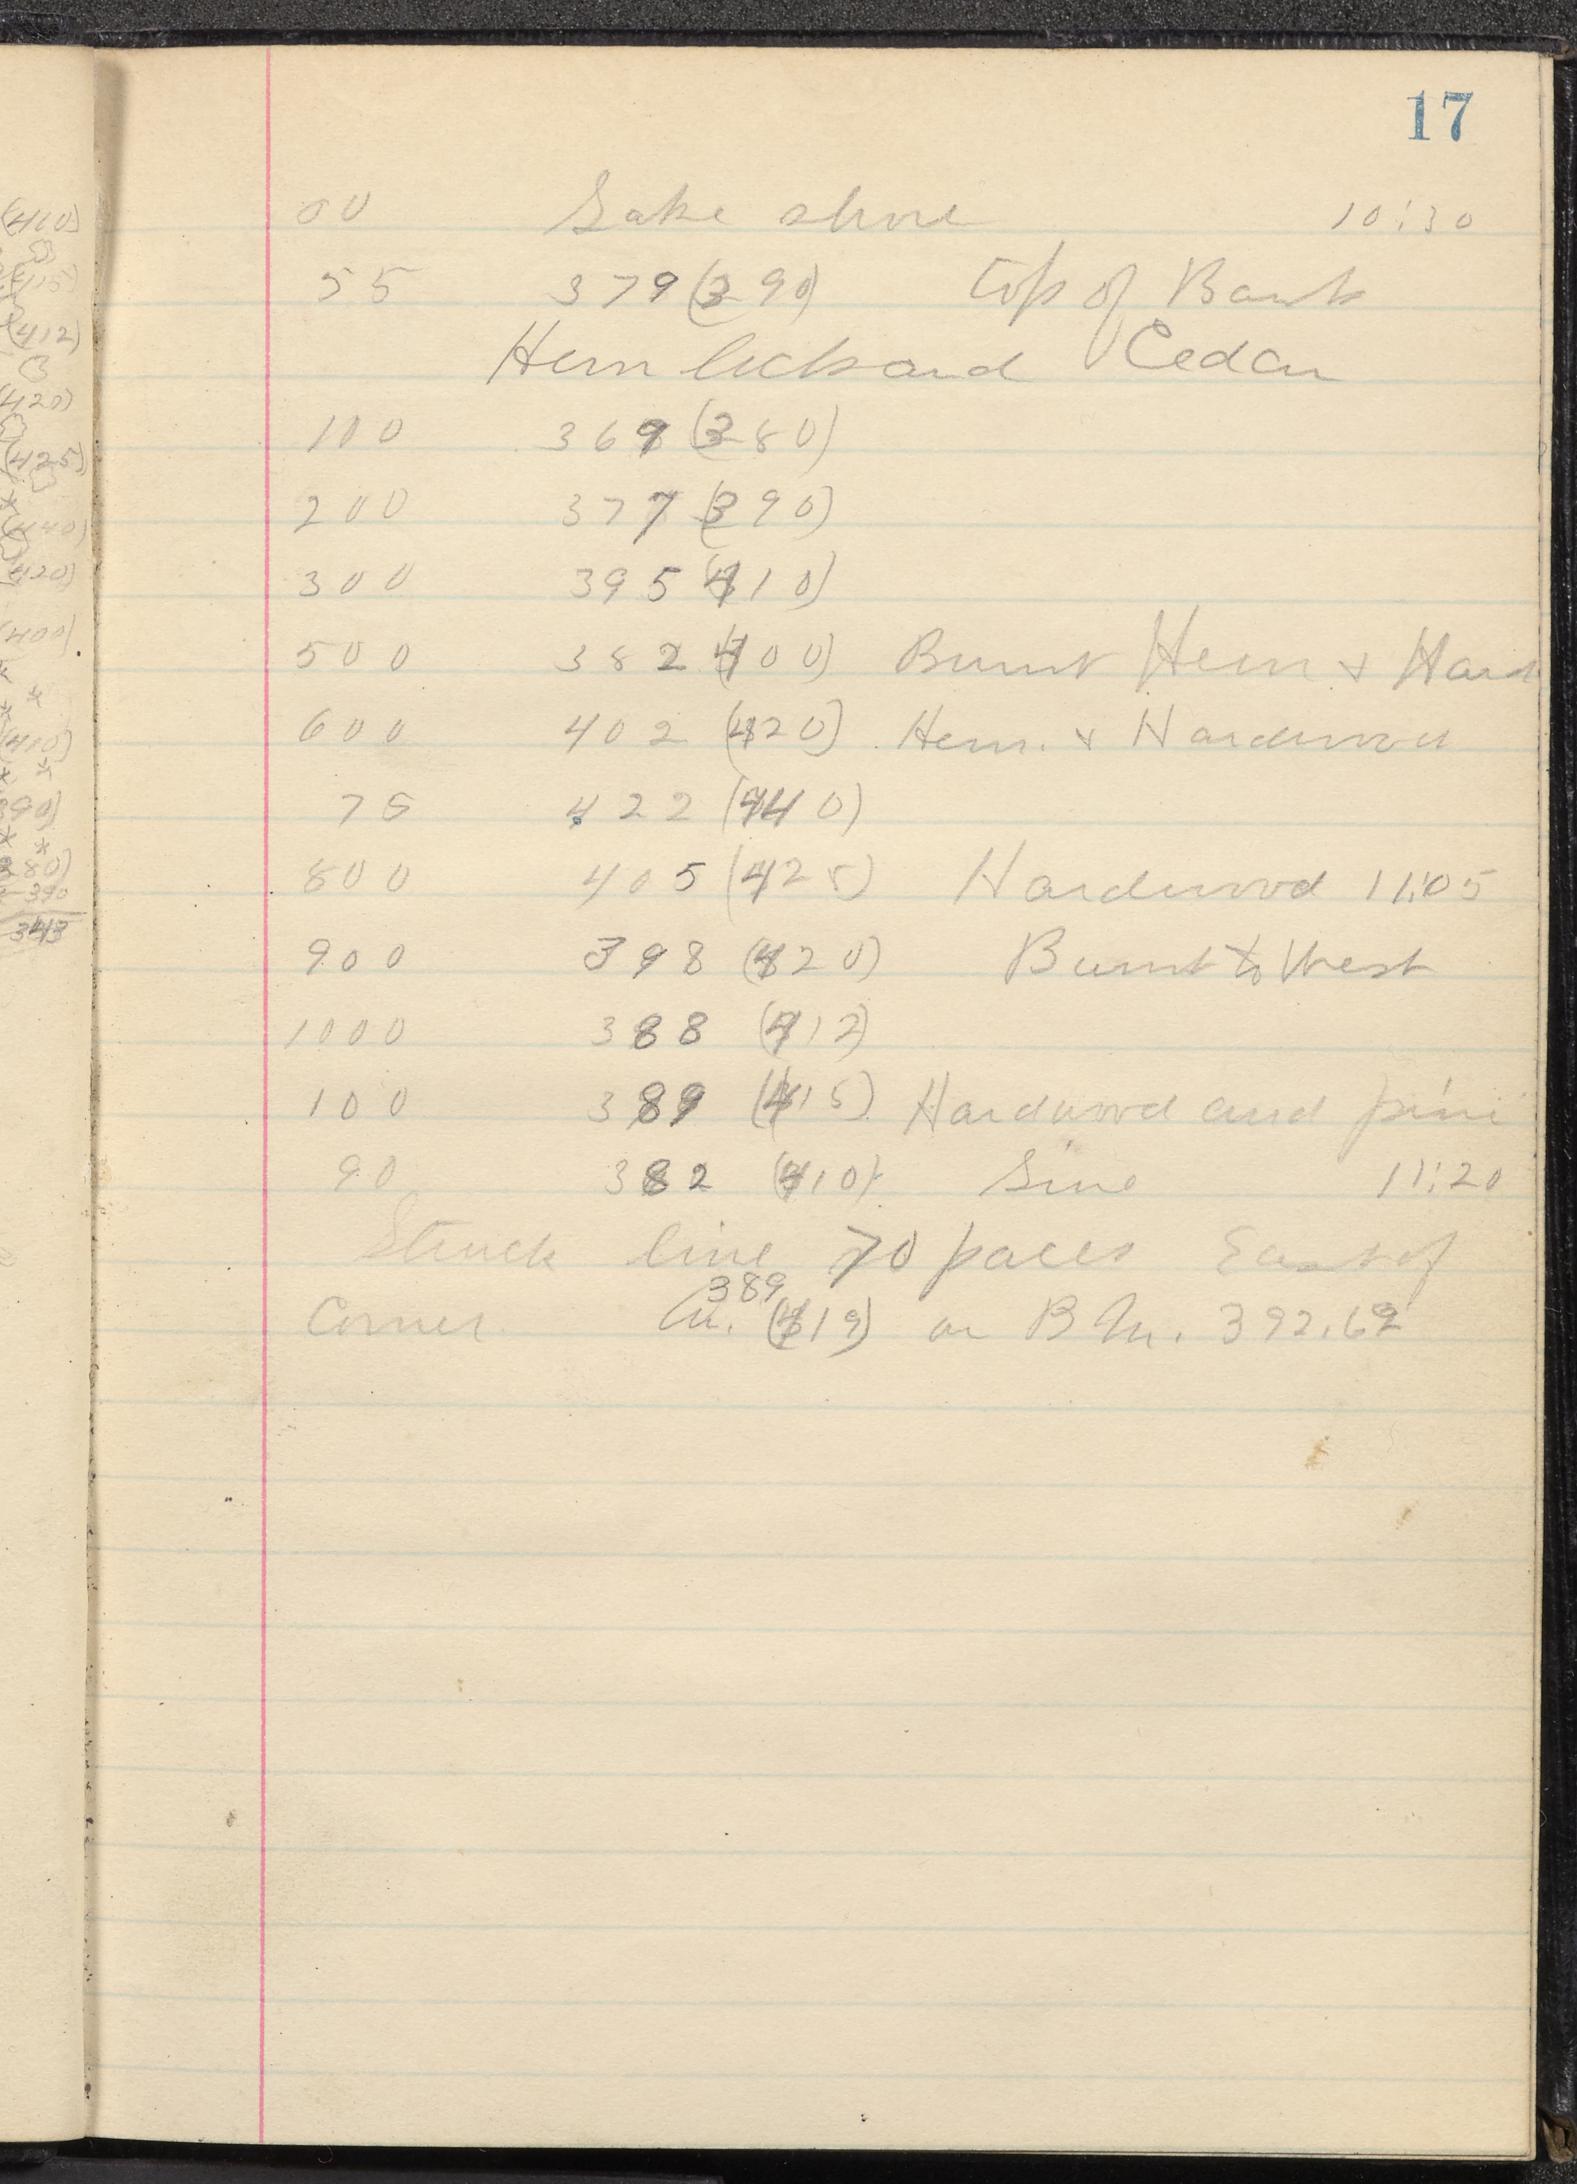 17
00 Lake shore 10:30
55 379 (390) top of Bank
Hemlock and Cedar
100 369 (380)
200 377 (390)
300 395 (410)
500 382 (400) Burnt Hem & Hard
600 402 (420) Hem. & Hardwood
75 422 (440)
800 405 (425) Hardwood 11:05
900 398 (420) Burnt to West
1000 388 (412)
100 389 (415) Hardwood and pine
90 382 (410) Line 11:20
Struck line 70 paces East of
389
Corner (419) on B.M. 392.62
(410)
(415)
(412)
(420)
(425)
(440)
(420)
(400)
(410)
390)
380)
390
343